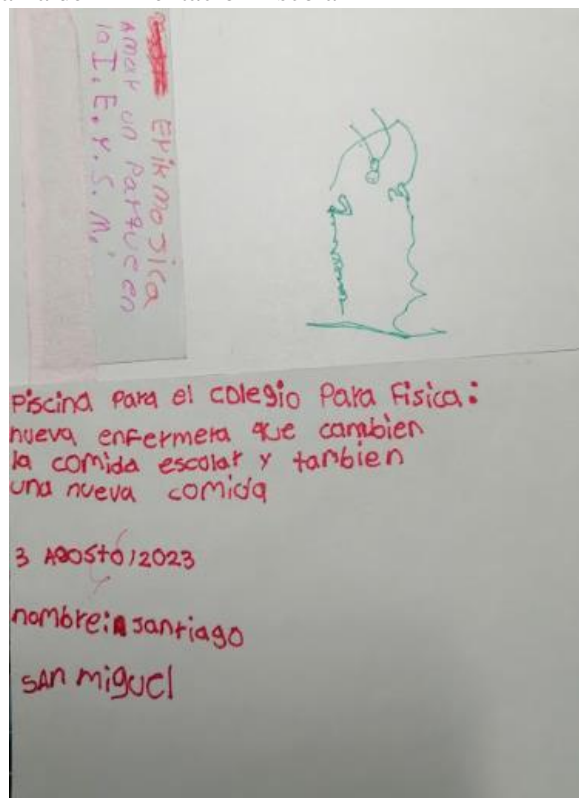 Erik Mojica
Amar un Parque en
la I. E. Y. S. M.
Piscina Para el colegio Para Fisica:
nueva enfermera que cambien
la comida escolar y tambien
una nueva comida
3 AgOSto/2023
nombre: santiago
SAn miguel